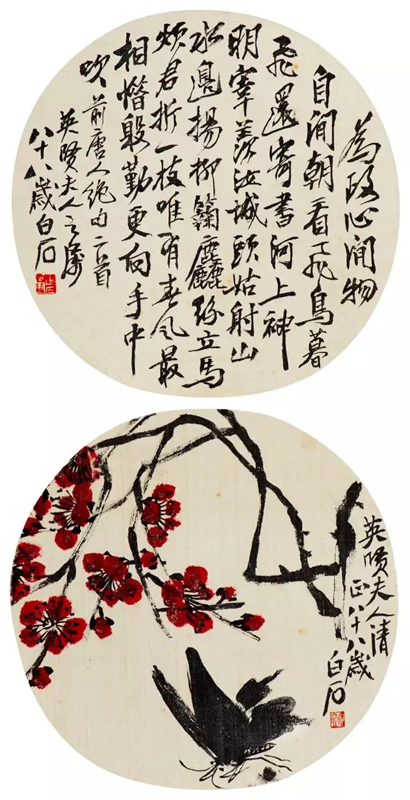 為政心閒物
自閒朝看飛鳥暮
飛還寄書河上神
明宰羨汝城頭姑射山
水邊楊柳麴塵絲立馬
煩君折一枝唯有春風最
相惜殷勤更向手中
吹 前唐人絕句二首
英賢夫人之屬
八十八歲白石
英賢夫人清
正八十八歲
白石